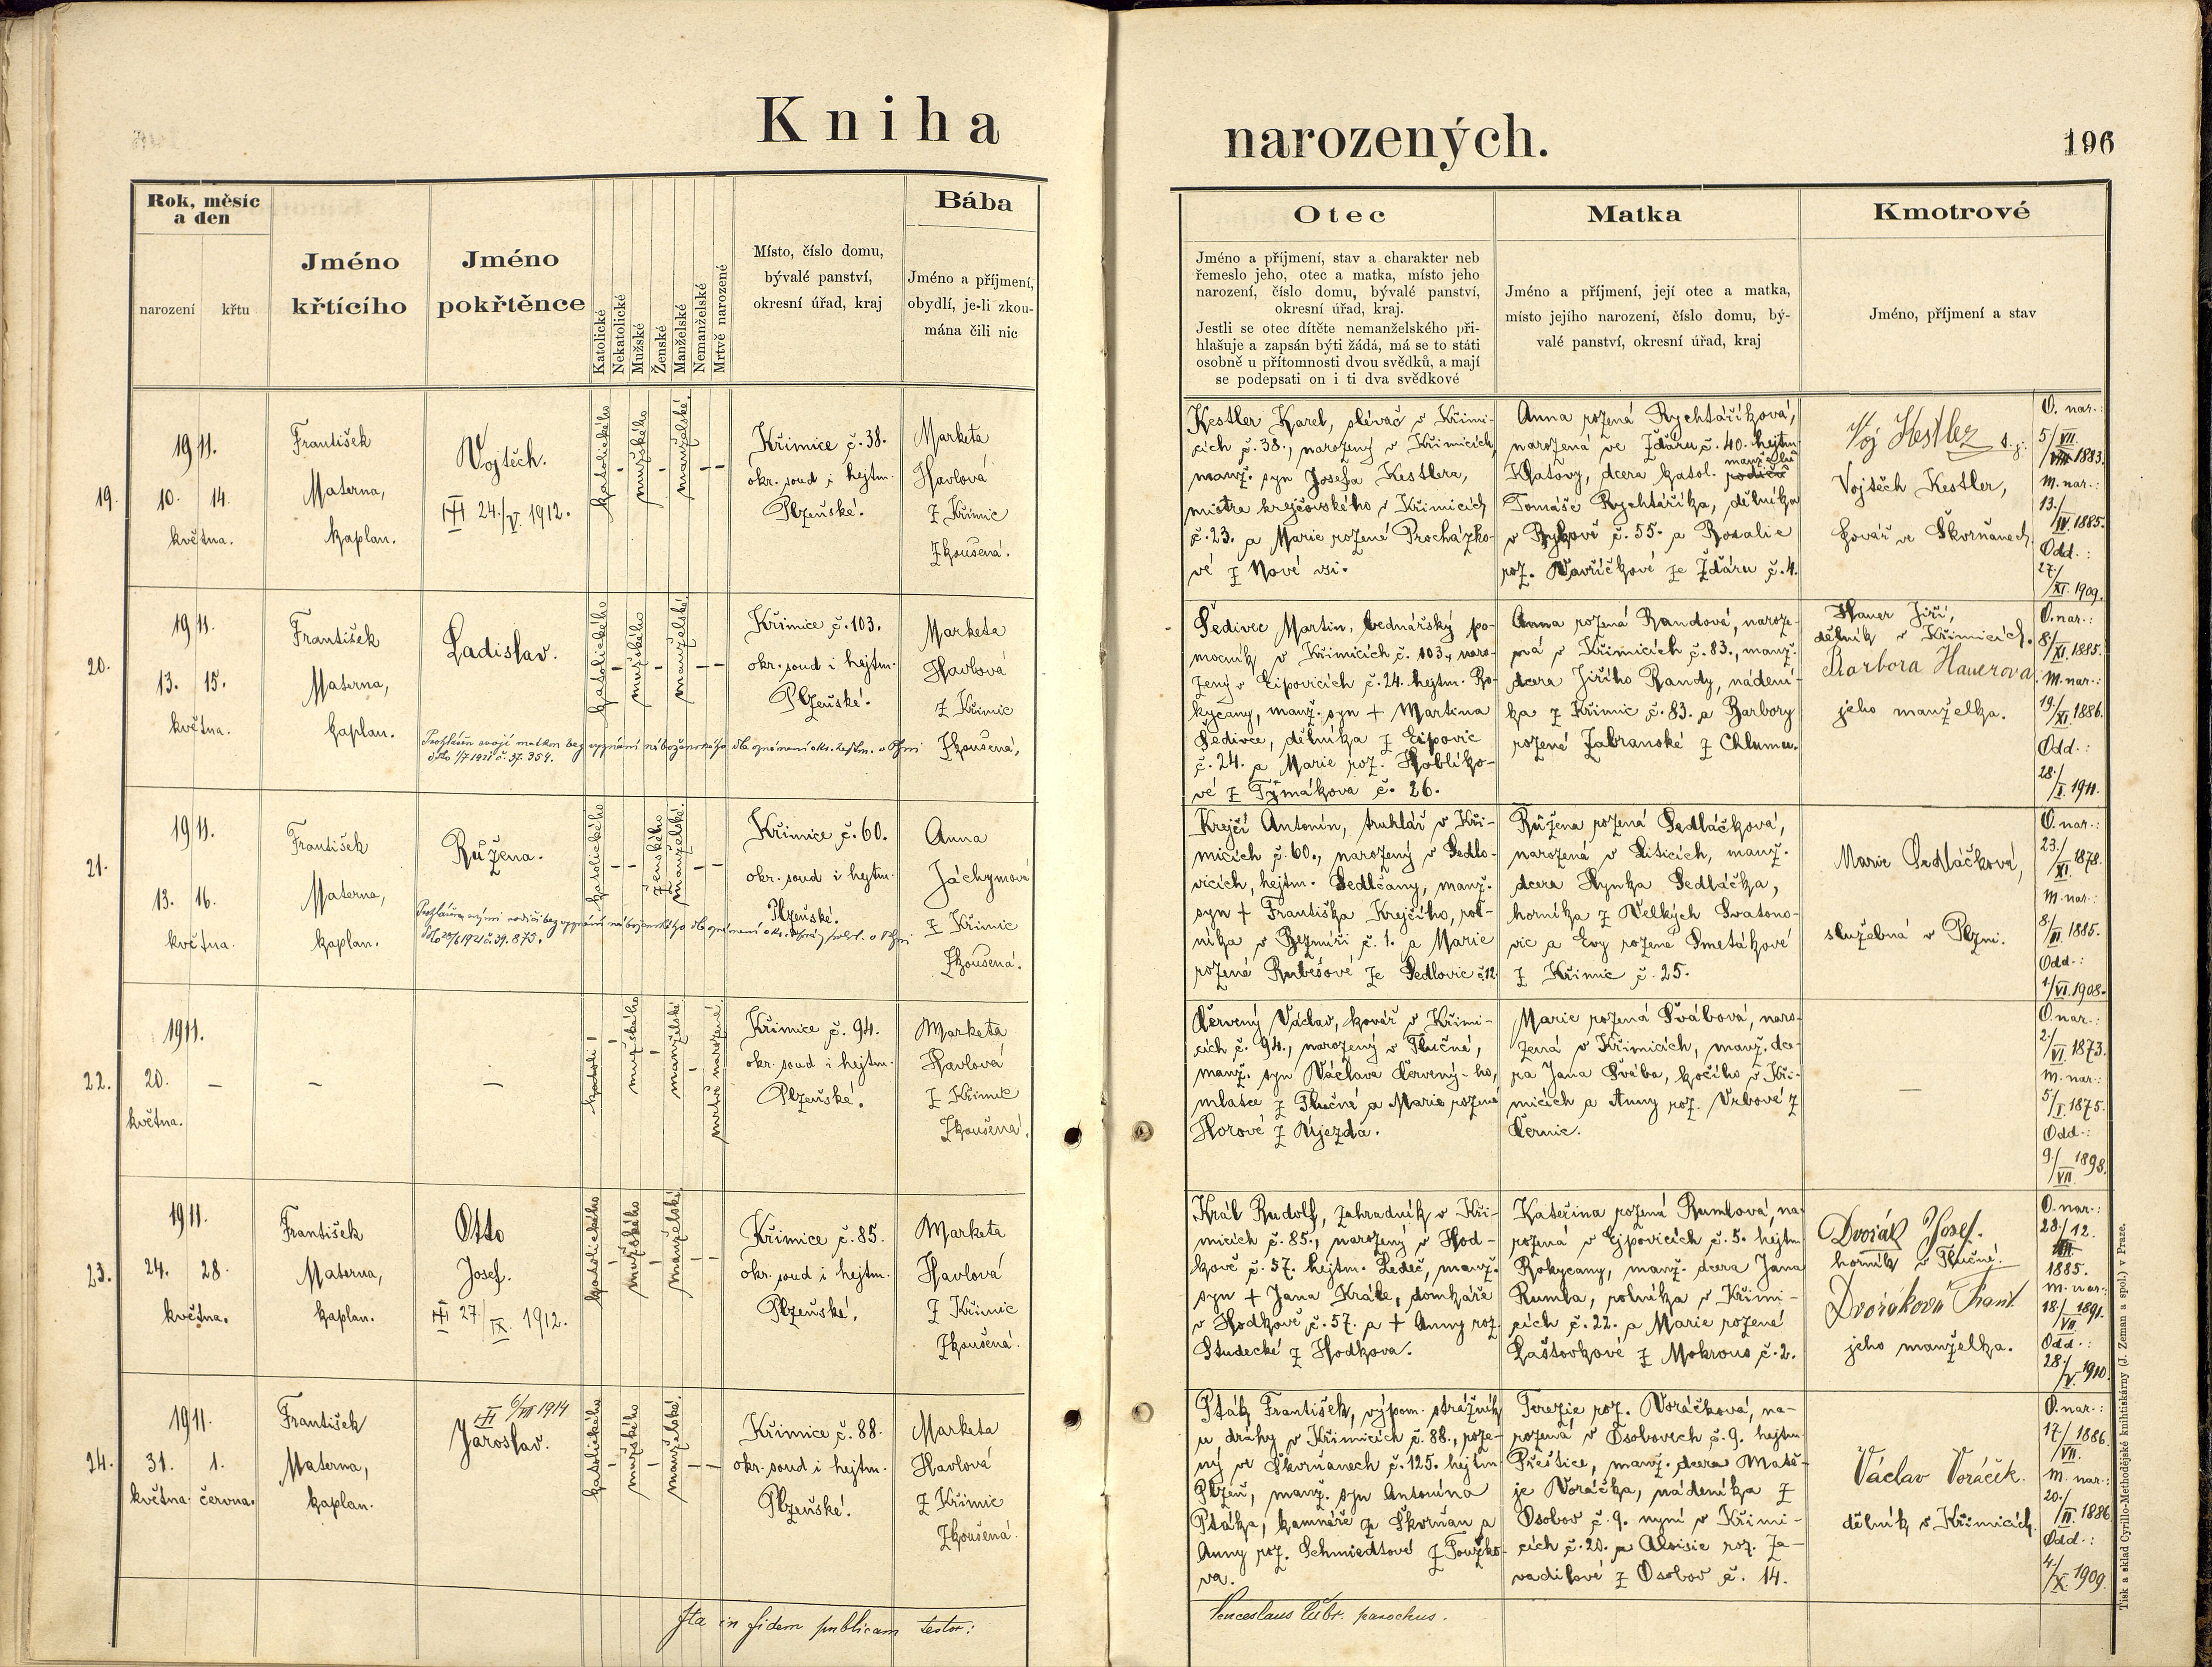 Kniha
narozených.
196
Rok, měsíc
a den
narození
křtu
Jméno
křtícího
Jméno
pokřtěnce
Katolické
Nekatolické
Mužské
Ženské
Manželské
Nemanželské
Mrtvě narozené
Místo, číslo domu,
bývalé panství,
okresní úřad, kraj
Bába
Jméno a příjmení,
obydlí, je-li zkou-
mána čili nic
Otec
Jméno a příjmení, stav a charakter neb
řemeslo jeho, otec a matka, místo jeho
narození, číslo domu, bývalé panství,
okresní úřad, kraj.
Jestli se otec dítěte nemanželského při-
hlašuje a zapsán býti žádá, má se to státi
osobně u přítomnosti dvou svědků, a mají
se podepsati on i ti dva svědkové
Matka
Jméno a příjmení, její otec a matka,
místo jejího narození, číslo domu, bý-
valé panství, okresní úřad, kraj
Kmotrové
Jméno, příjmení a stav
19.
1911.
10. 14.
května.
František
Materna,
kaplan.
Vojtěch.
24./V. 1912.
katolického
mužského
manželské.
Křimice č. 38.
okr. soud i hejtm.
Plzeňské.
Marketa
Havlová
z Křimic
zkoušená.
Kestler Karel, slévač v Křimi-
cích č. 38., narozený v Křimicích,
manž. syn Josefa Kestlera,
mistra krejčovského v Křimicích
č. 23. a Marie rozené Procházko-
vé z Nové vsi.
Anna rozená Rychtáříková,
narozená ve Žďáru č. 40. hejtm.
Klatovy, dcera katol. manželů
Tomáše Rychtáříka, dělníka
v č. 55. a Rosalie
roz. Vavříčkové ze Žďáru č. 4.
Voj Kestler
Vojtěch Kestler,
kovář ve Škvrňanech.
O. nar.:
5/VII. 1883.
M. nar.:
13./IV. 1885.
Odd.:
27./XI. 1909.
20.
1911.
13. 15.
května.
František
Materna,
kaplan.
Ladislav.
Prohlášen svojí matkou bez vyznání náboženského dle oznámení okr. hejtm. v Plzni
dtto 1/7 1921 č. 37.359.
katolického
mužského
manželské
Křimice č. 103.
okr. soud i hejtm.
Plzeňské.
Marketa
Havlová
z Křimic
zkoušená,
Šedivec Martin, bednářský po-
mocník v Křimicích č. 103., naro-
zený v Ejpovicích č. 24. hejtm. Ro-
kycany, manž. syn + Martina
Šedivce, dělníka z Ejpovic
č. 24. a Marie roz. Hoblíko-
vé z Týmákova č. 26.
Anna rozená Randová, naroze-
ná v Křimicích č. 83., manž.
dcera Jiřího Randy, nádení-
ka z Křimic č. 83. a Barbory
rozené Zabranské z Chlumu.
Hauer Jiří,
dělník v Křimicích.
Barbora Hauerova
jeho manželka.
O. nar.:
8./XI. 1885.
M. nar.:
19./XI. 1886.
Odd.:
28./I. 1911.
21.
1911.
13. 16.
května.
František
Materna,
kaplan.
Růžena.
katolického
ženského
manželské.
Křimice č. 60.
okr. soud i hejtm.
Plzeňské.
Anna
Jáchymová
z Křimic
zkoušená.
Krejčí Antonín, truhlář v Kři-
micích č. 60., narozený v Sedlo-
vicích, hejtm. Sedlčany, manž.
syn + Františka Krejčího, rol-
níka v Bezmíři č. 1. a Marie
rozené Rubešové ze Sedlovic č. 12.
Růžena rozená Sedláčková,
narozená v Lišicích, manž.
dcera Hynka Sedláčka,
horníka z Velkých Svatono-
vic a Evy rozené Smetákové
z Křimic č. 25.
Marie Sedláčková,
služebná v Plzni.
O. nar.:
23./XI. 1878.
M. nar.:
8./II. 1885.
Odd.:
1./VI. 1908.
22.
1911.
20. –
května.
–
–
mužského
manželské
mrtvě narozené.
Křimice č. 94.
okr. soud i hejtm.
Plzeňské.
Marketa
Havlová
z Křimic
zkoušená.
Červený Václav, kovář v Křimi-
cích č. 94., narozený v Tlučné,
manž. syn Václava Červený-ho,
mlatce z Tlučné a Marie rozené
Horové z Újezda.
Marie rozená Švábová, naro-
zená v Křimicích, manž. dce-
ra Jana Švába, kočího v Kři-
micích a Anny roz. Vrbové z
Černic.
–
O. nar.:
2./VI. 1873.
M. nar.:
5/I. 1875.
Odd.:
9./VII. 1898.
23.
1911.
24. 28.
května.
František
Materna,
kaplan.
Otto
Josef.
27./IX. 1912.
katolického
mužského
manželské.
Křimice č. 85.
okr. soud i hejtm.
Plzeňské.
Marketa
Havlová
z Křimic
zkoušená.
Král Rudolf, zahradník v Kři-
micích č. 85., narozený v Hod-
kově č. 57. hejtm. Ledeč, manž.
syn + Jana Krále, domkáře
v Hodkově č. 57. a + Anny roz.
Studecké z Hodkova.
Kateřina rozená Rumlová, na-
rozená v Ejpovicích č. 5. hejtm.
Rokycany, manž. dcera Jana
Rumla, rolníka v Křimi-
cích č. 22. a Marie rozené
Laštovkové z Mokrous č. 2.
Dvořák Josef.
horník v Tlučné.
Dvořáková Frant.
jeho manželka.
O. nar.:
28./12.
1885.
M. nar.:
18./VII. 1891.
Odd.:
28./V. 1910.
24.
1911.
31. 1.
května. června.
František
Materna,
kaplan.
6/VII 1914
Jaroslav.
katolického
mužského
manželské.
Křimice č. 88.
okr. soud i hejtm.
Plzeňské.
Marketa
Havlová
z Křimic
zkoušená.
Pták František, výpom. strážník
u dráhy v Křimicích č. 88., roze-
ný ve Škvrňanech č. 125. hejtm.
Plzeň, manž. syn Antonína
Ptáka, kamnáře ze Škvrňan a
Anny roz. Schmiedtové z Touško-
va.
Terezie roz. Voráčková, na-
rozená v Osobovech č. 9. hejtm.
Přeštice, manž. dcera Matě-
je Voráčka, nádeníka z
Osobov č. 9. nyní v Křimi-
cích č. 20. a Aloisie roz. Za-
vadilové z Osobov č. 14.
Václav Voráček.
dělník v Křimicích.
O. nar.:
17./VII. 1886.
M. nar.:
20./II. 1886.
Odd.:
4./X. 1909.
Ita in fidem publicam testor:
Venceslaus parochus.
Tisk a sklad Cyrillo-Methodějské knihtiskárny (J. Zeman a spol.) v Praze.